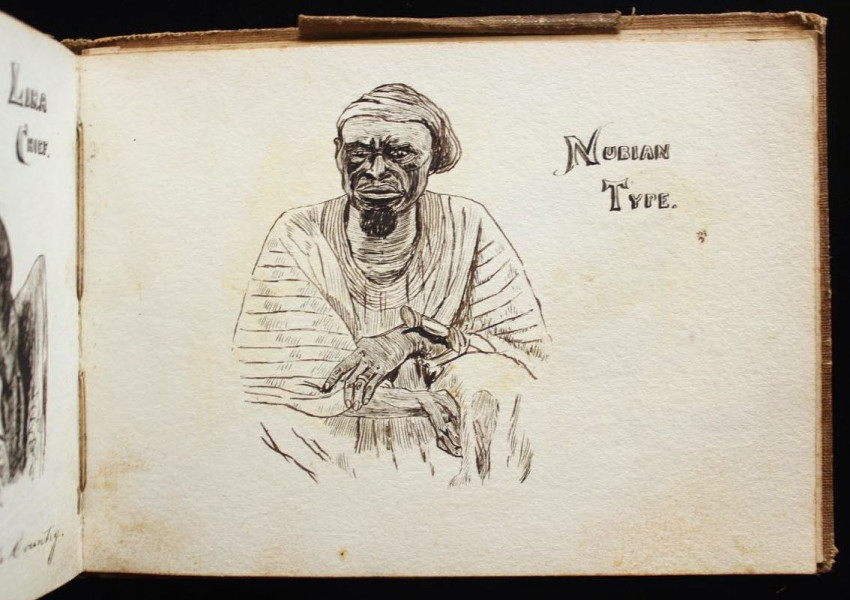 LIRA
CHIEF.
Country.
NUBIAN
TYPE.